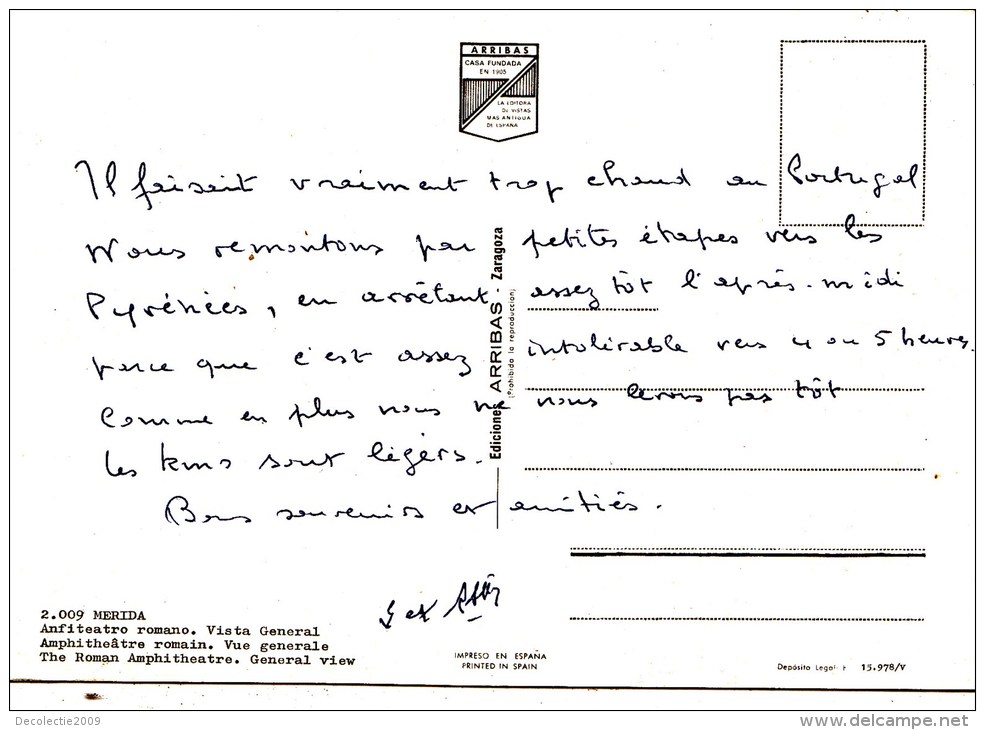 ARRIBAS
CASA FUNDADA
EN 1905
LA EDITORA
DE VISTAS
MAS ANTIGUA
DE ESPAÑA
Il faisait vraiment trop chaud au Portugal
Nous remontons par petites étapes vers les
Pyrénées, en arrêtant assez tôt l'après-midi
parce que c'est assez intolérable vers 4 ou 5 heures.
Comme en plus nous ne nous levons pas tôt
les kms sont légers.
Bons souvenirs et amitiés.
Ediciones ARRIBAS - Zaragoza
(Prohibida la reproducción)
2.009 MERIDA
Anfiteatro romano. Vista General
Amphitheâtre romain. Vue generale
The Roman Amphitheatre. General view
IMPRESO EN ESPAÑA
PRINTED IN SPAIN
Depósito Legal 15.978/V
Decolectie2009
www.delcampe.net